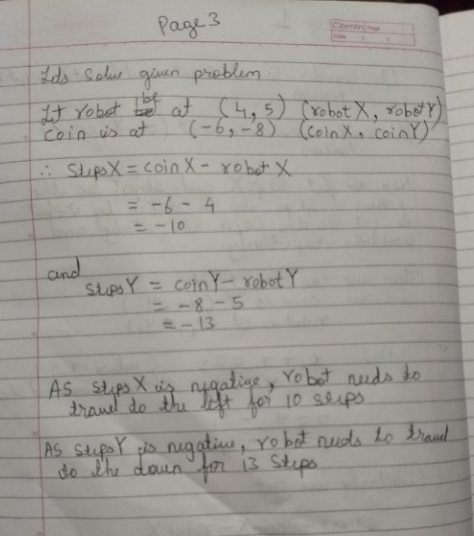 Page 3
Camlin Page
Date
Lds Solve given problem
Let robot be at (4, 5) (robot X, robot Y)
coin is at (-6, -8) (coinX, coinY)
∴ StepsX = coinX - robot X
= -6 - 4
= -10
and
stepsY = coinY - robotY
= -8 - 5
= -13
AS steps X is negative, robot needs to
travel to the left for 10 steps
AS stepsY is negative, robot needs to travel
to the down for 13 steps